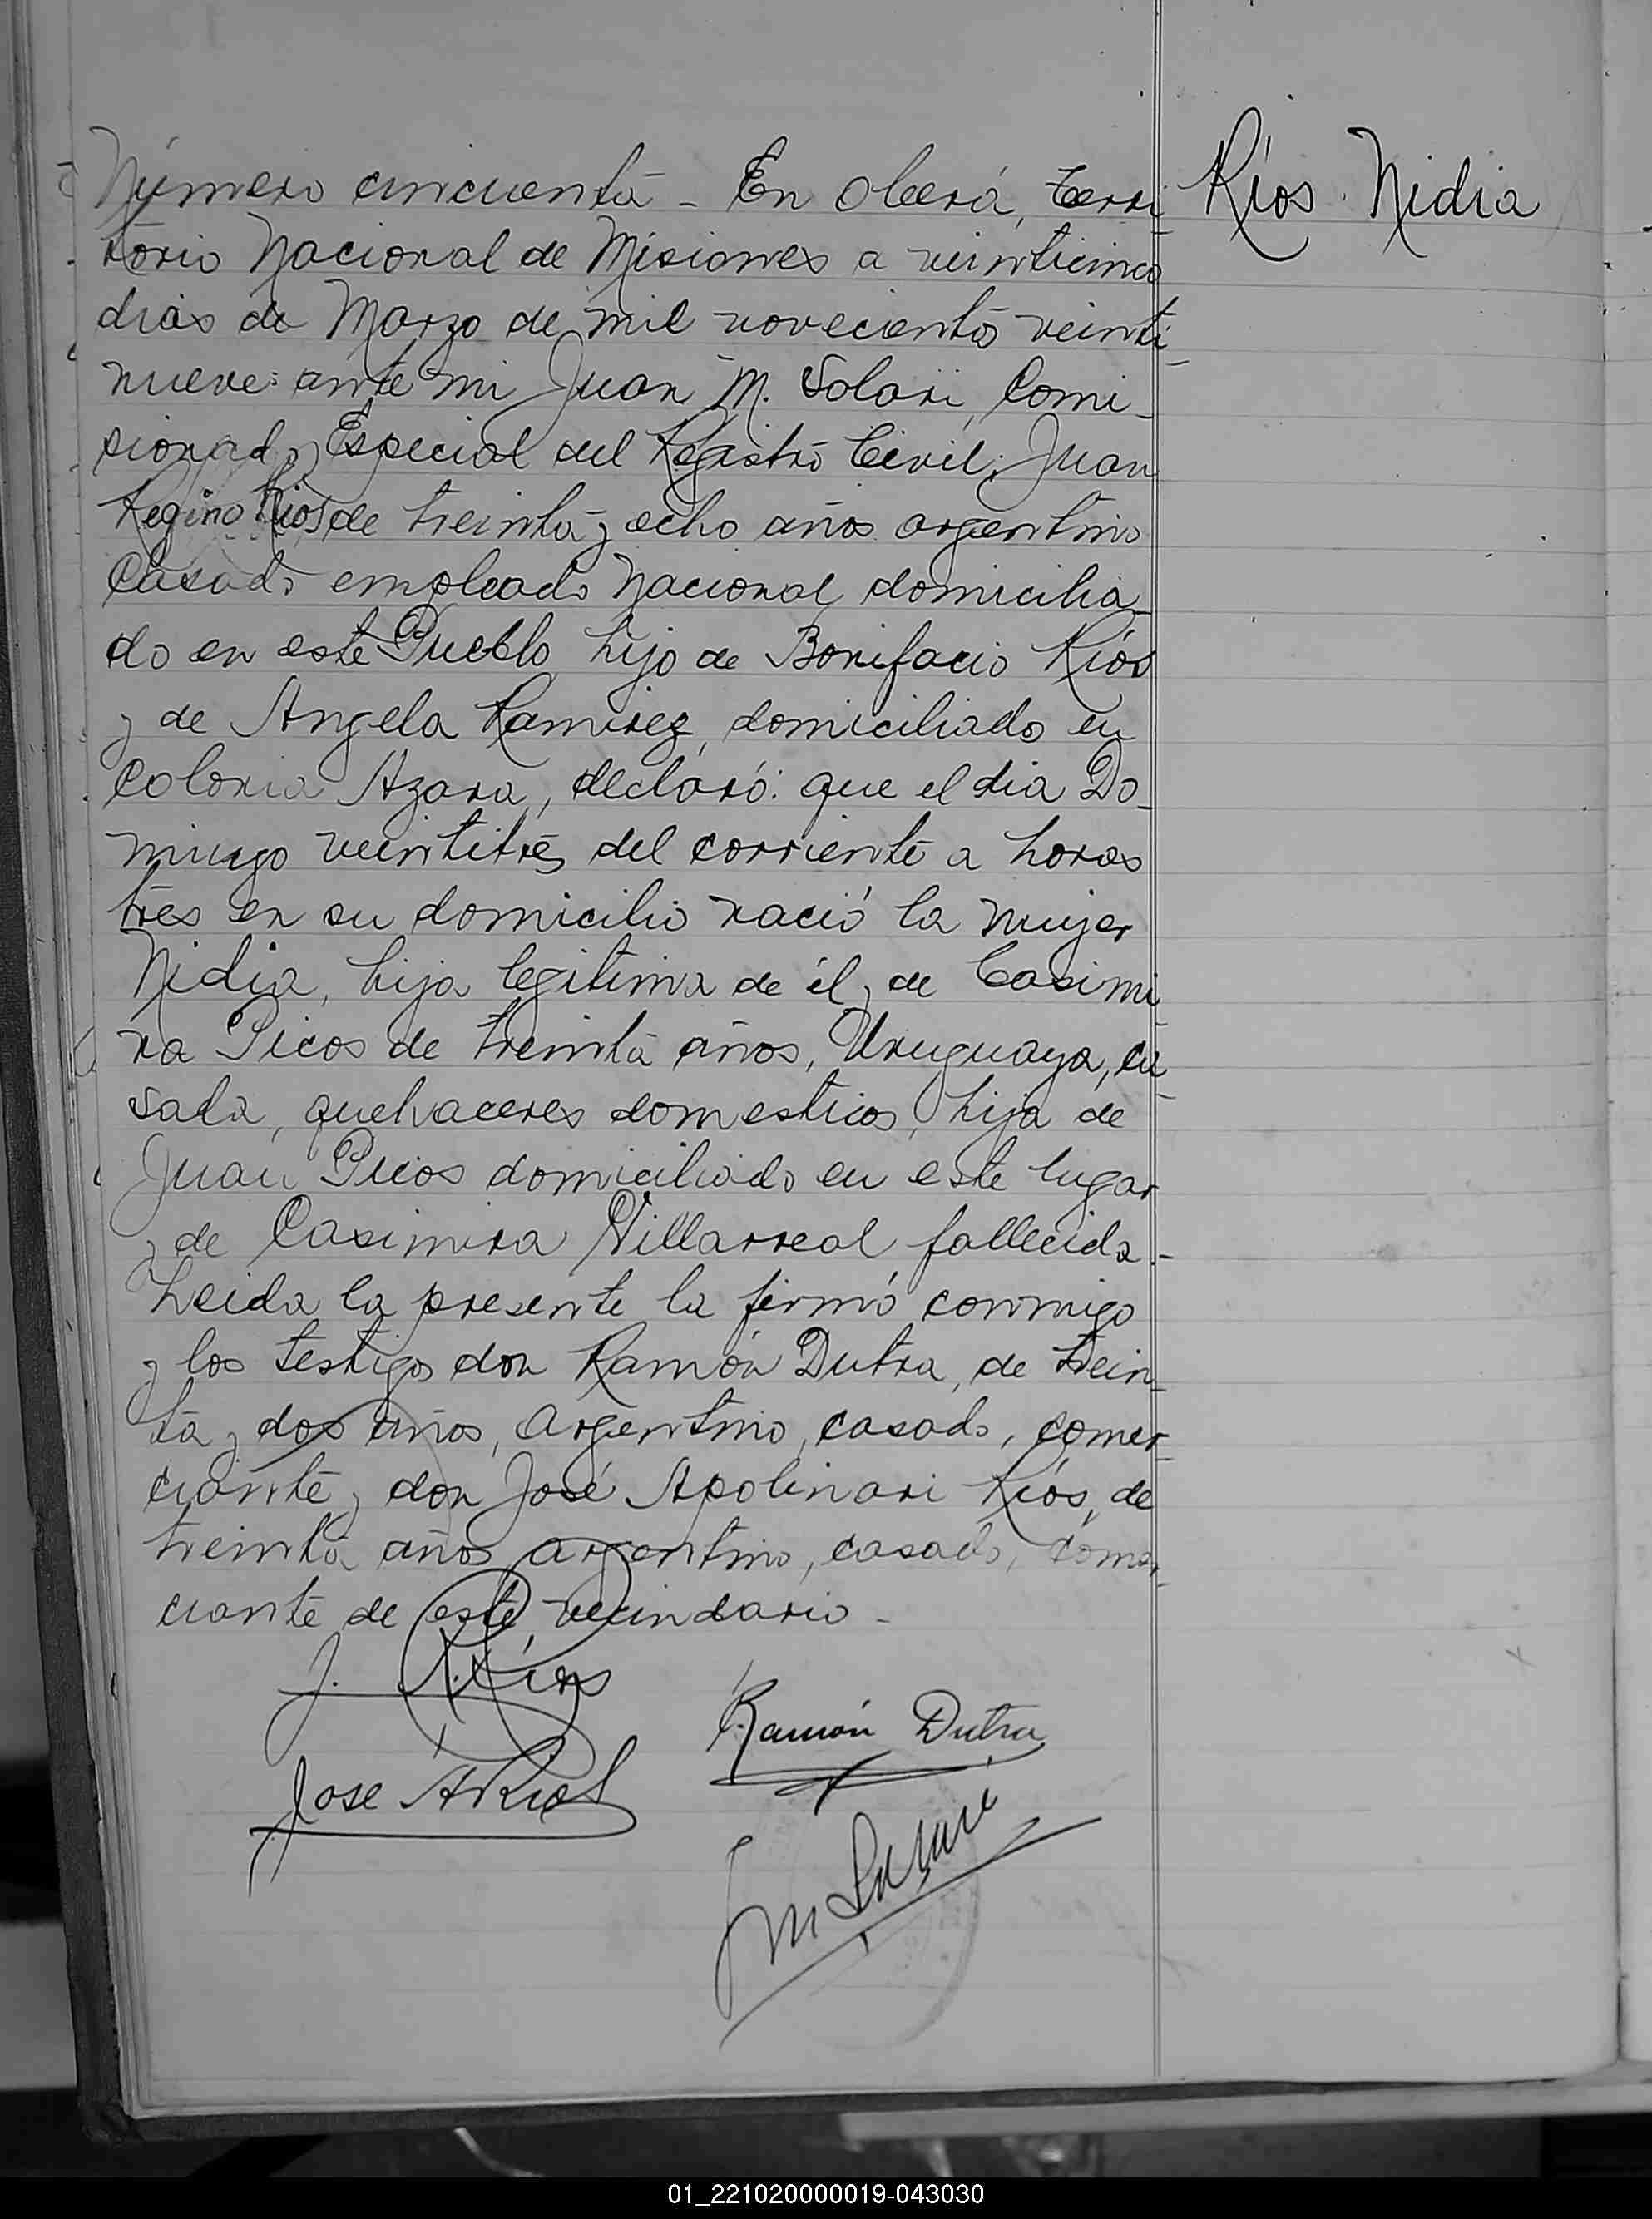 Número cincuenta - En Oberá, Terri
Ríos Nidia
torio Nacional de Misiones a veinticinco
dias de Marzo de mil novecientos veinti-
nueve: ante mi Juan M. Solari, Comi-
sionado Especial del Registro Civil, Juan
Regino Rios de treinta y ocho años argentino
Casado empleado Nacional domicilia-
do en este Pueblo hijo de Bonifacio Ríos
y de Angela Ramirez, domiciliado en
Colonia Azara, declaró: que el dia Do-
mingo veintitrés del corriente a horas
tres en su domicilio nació la mujer
Nidia, hija legitima de él y de Casimi
ra Picos de treinta años, Uruguaya, ca-
sada, quehaceres domesticos, hija de
Juan Picos domiciliado en este lugar
y de Casimira Villarreal fallecida.-
Leida la presente la firmó conmigo
y los testigos don Ramón Dutra, de trein-
ta y dos años, Argentino, casado, comer-
ciante y don José Apolinari Ríos, de
treinta años argentino, casado, comer-
ciante de este vecindario -
J. R. Ríos
Ramón Dutra
Jose A Rios
JM Solari
01_221020000019-043030